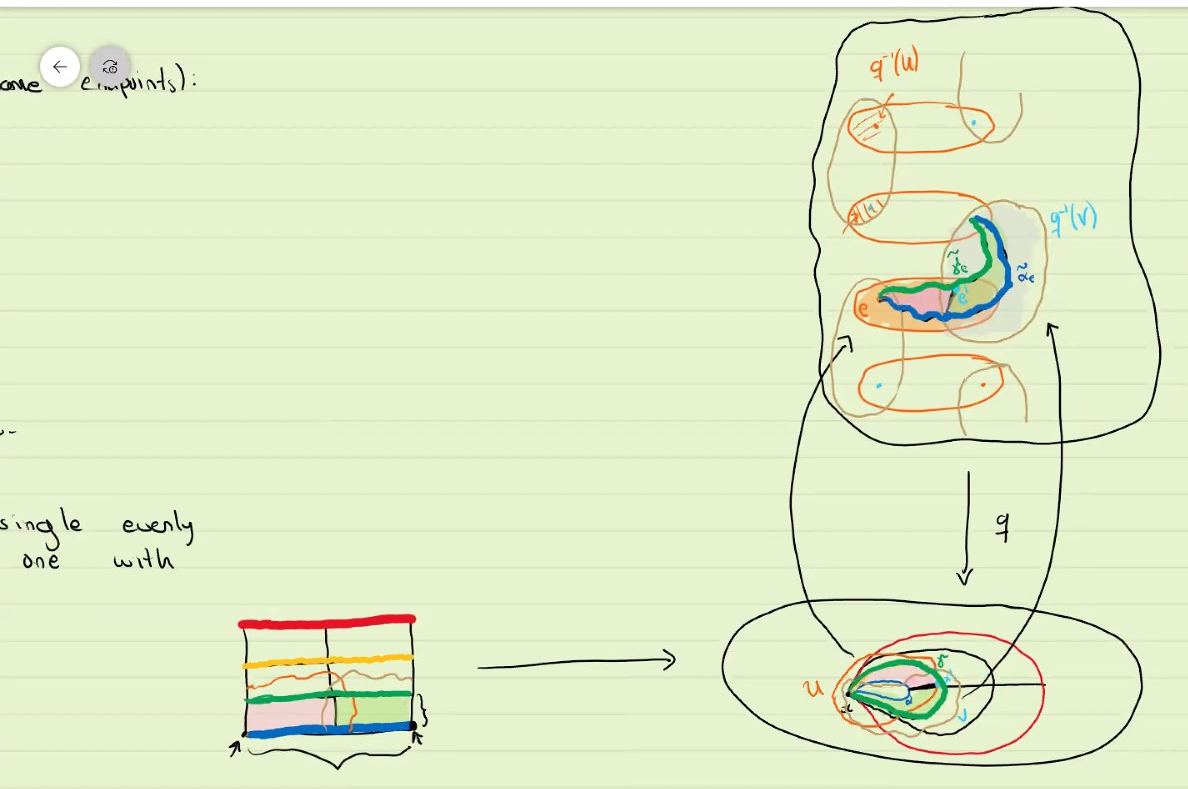 ome endpoints):
single evenly
one with
q⁻¹(U)
q⁻¹(V)
γ̃e
α̃e
e
e'
q
U
γ
α
x
V